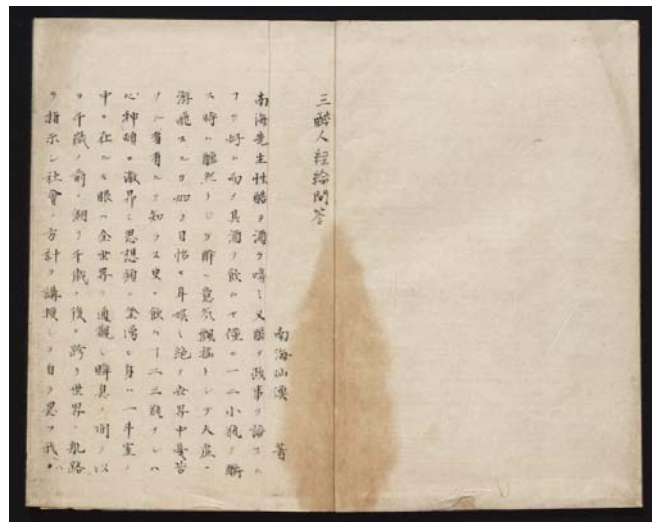 三酔人経綸問答
南海仙漁 著
南海先生性酷タ酒ヲ嗜ミ又酷タ政事ヲ論スル
ヿヲ好ム而ノ其酒ヲ飲ムヤ僅ニ一二小瓶ヲ釂
ス時ハ醺然トシテ酔ヒ意気飄揺トシテ大虚ニ
游飛スルカ如ク目怡ヒ耳娯ミ絶テ世界中憂苦
ナル者有ルヲ知ラス更ニ飲ムヿ二三瓶ナレハ
心神頓ニ激昂シ思想頻ニ坌湧シ身ハ一斗室ノ
中ニ在ルモ眼ハ全世界ヲ通観シ瞬息ノ間ヲ以
テ千歳ノ前ニ溯リ千歳ノ後ニ跨リ世界ノ航路
ヲ指示シ社會ノ方針ヲ講授シテ自ラ思フ我ハ